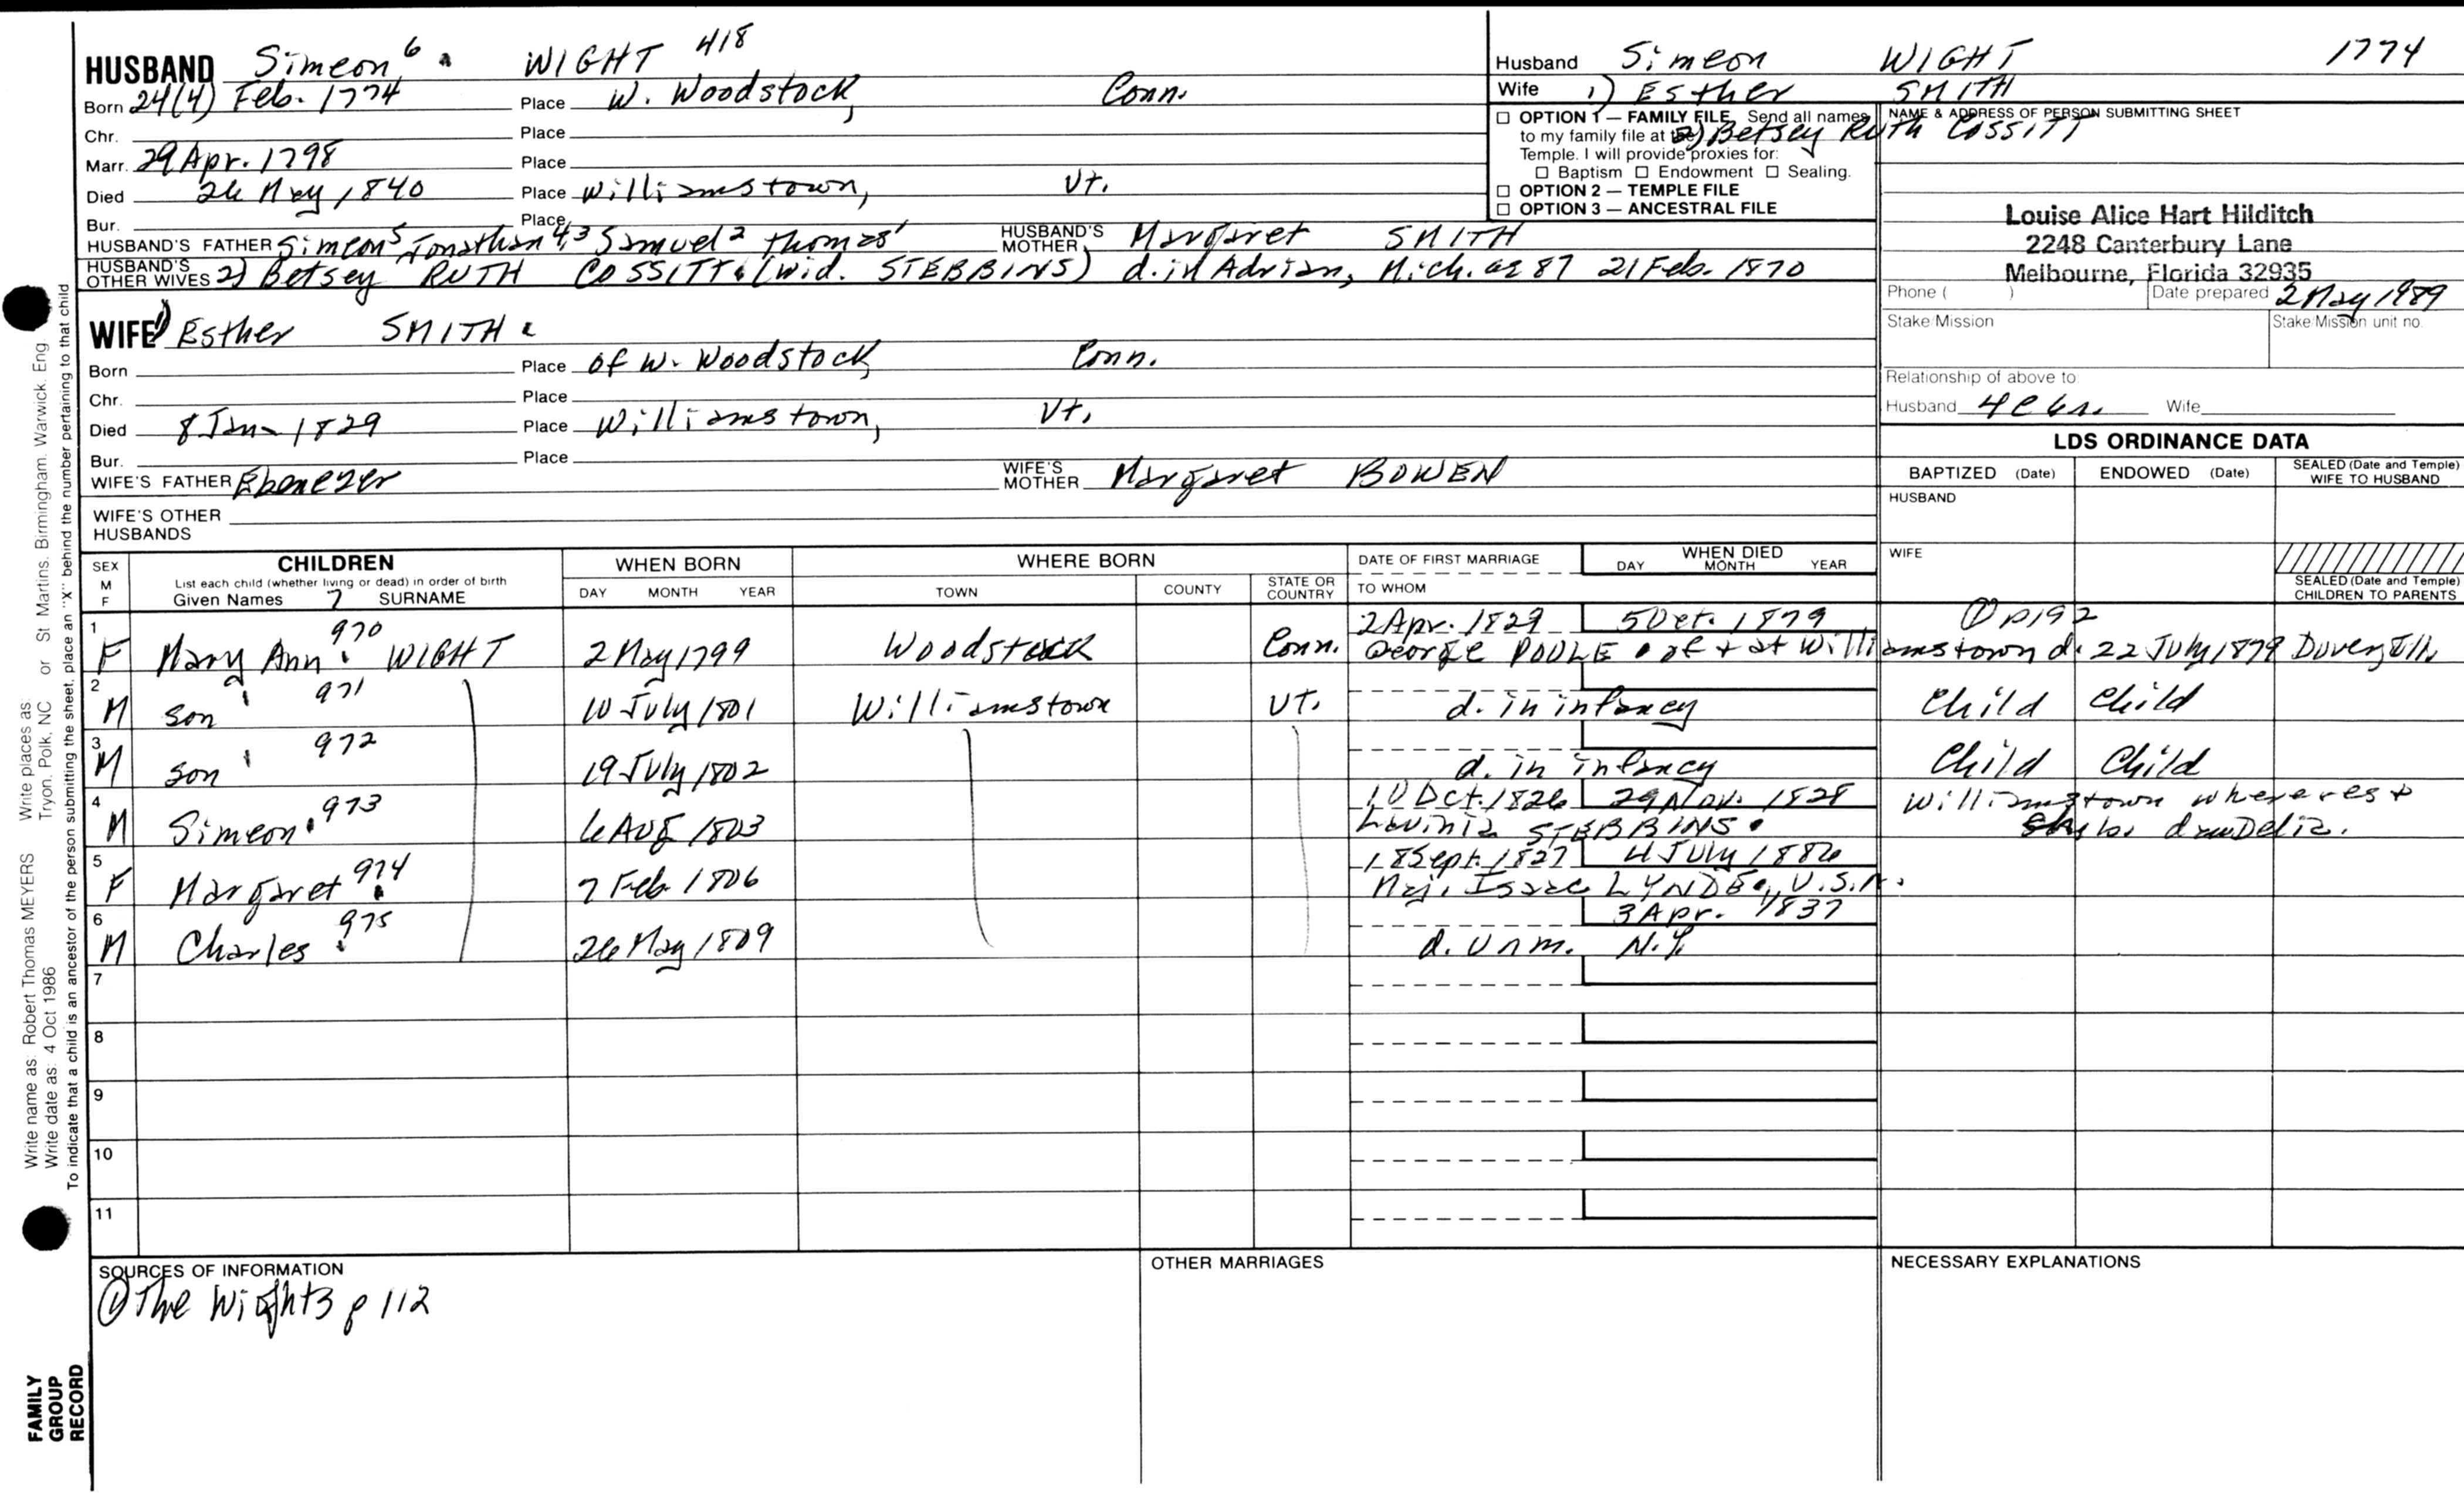 HUSBAND Simeon 6 WIGHT 418
Born 24(4) Feb. 1774 Place W. Woodstock, Conn.
Chr. Place
Marr. 29 Apr. 1798 Place
Died 26 May 1840 Place Williamstown, Vt.
Bur. Place
HUSBAND'S FATHER Simeon5 Jonathan4,3 Samuel2 Thomas1 HUSBAND'S MOTHER Margaret SMITH
HUSBAND'S OTHER WIVES 2) Betsey RUTH COSSITT (wid. STEBBINS) d. in Adrian, Mich. ae 87 21 Feb. 1870
WIFE 1) Esther SMITH
Born Place of W. Woodstock, Conn.
Chr. Place
Died 8 Jan 1829 Place Williamstown, Vt.
Bur. Place
WIFE'S FATHER Ebenezer WIFE'S MOTHER Margaret BOWEN
WIFE'S OTHER HUSBANDS
Husband Simeon WIGHT 1774
Wife 1) Esther SMITH
2) Betsey Ruth COSSITT
☐ OPTION 1 — FAMILY FILE Send all names
to my family file at the
Temple. I will provide proxies for:
☐ Baptism ☐ Endowment ☐ Sealing.
☐ OPTION 2 — TEMPLE FILE
☐ OPTION 3 — ANCESTRAL FILE
NAME & ADDRESS OF PERSON SUBMITTING SHEET
Louise Alice Hart Hilditch
2248 Canterbury Lane
Melbourne, Florida 32935
Phone ( ) Date prepared 2 May 1989
Stake/Mission Stake/Mission unit no.
Relationship of above to:
Husband 4C6r. Wife
LDS ORDINANCE DATA
BAPTIZED (Date) ENDOWED (Date) SEALED (Date and Temple) WIFE TO HUSBAND
HUSBAND
WIFE
SEALED (Date and Temple) CHILDREN TO PARENTS
SEX M F
CHILDREN
List each child (whether living or dead) in order of birth
Given Names 7 SURNAME
WHEN BORN
DAY MONTH YEAR
WHERE BORN
TOWN COUNTY STATE OR COUNTRY
DATE OF FIRST MARRIAGE
TO WHOM
WHEN DIED
DAY MONTH YEAR
1 F Mary Ann 970 WIGHT 2 May 1799 Woodstock Conn. 2 Apr. 1829 5 Oct. 1879 ① p192
George POOLE of + at Williamstown d. 22 July 1879 Dover, Ill.
2 M son 971 10 July 1801 Williamstown VT. d. in infancy Child Child
3 M son 972 19 July 1802 d. in infancy Child Child
4 M Simeon 973 6 Aug 1803 10 Oct. 1826 29 Nov. 1828 Williamstown where res +
Lovinia STEBBINS. dau Delia.
5 F Margaret 974 7 Feb. 1806 18 Sept. 1827 4 July 1886
Maj. Isaac LYNDE, U.S.A.
6 M Charles 975 26 May 1809 3 Apr. 1837
d. unm. N.Y.
7
8
9
10
11
SOURCES OF INFORMATION
① The Wights p 112
OTHER MARRIAGES
NECESSARY EXPLANATIONS
Write name as: Robert Thomas MEYERS Write places as: Tryon, Polk, NC or St Martins, Birmingham, Warwick, Eng
Write date as: 4 Oct 1986
To indicate that a child is an ancestor of the person submitting the sheet, place an "X" behind the number pertaining to that child
FAMILY
GROUP
RECORD